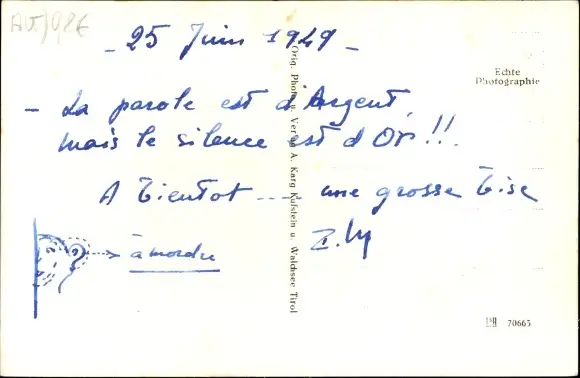 - 25 Juin 1949 -
Echte
Photographie
- La parole est d'Argent,
mais le silence est d'Or !!.
A Bientot ---- une grosse Bise
à mordre
Orig. Photo u. Verlag A. Karg Kufstein u. Walchsee Tirol
70665